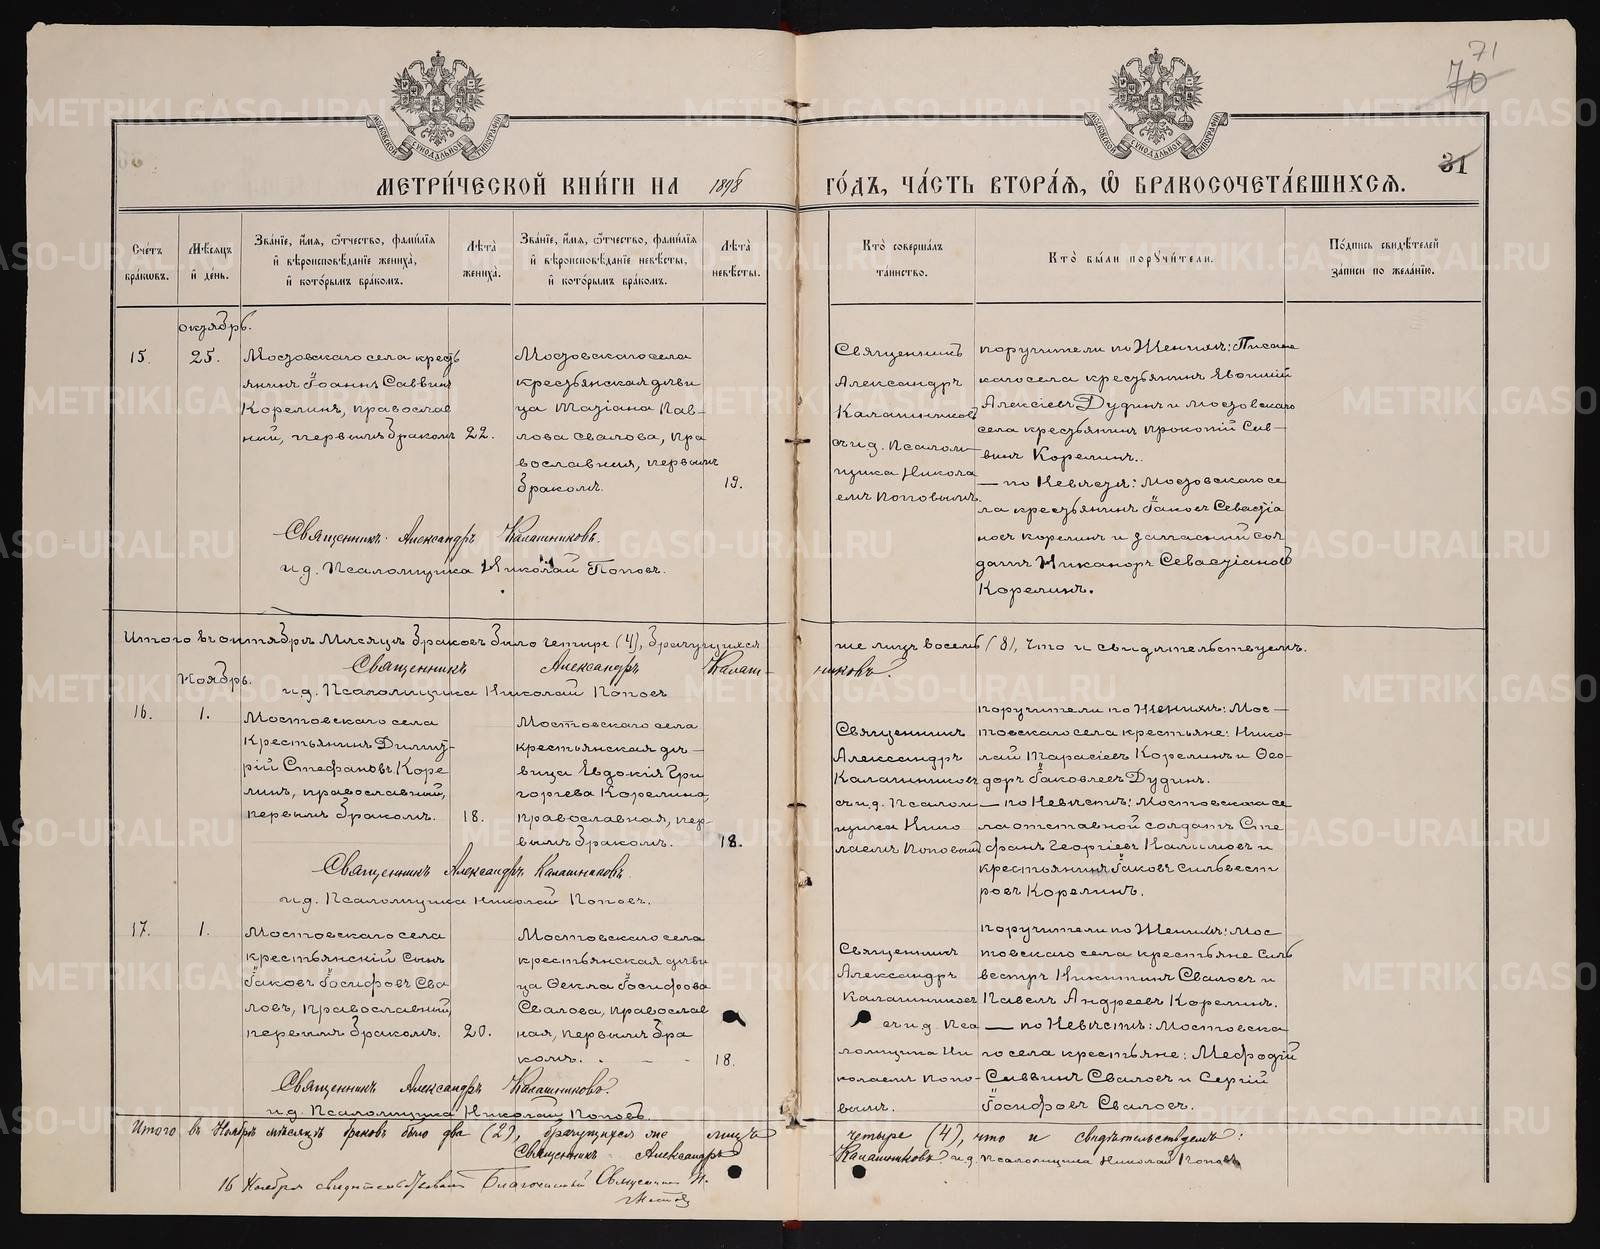 71
70
31
МЕТРИ́ЧЕСКОЙ КНИ́ГИ НА 1898 ГО́ДЪ, ЧА́СТЬ ВТОРА́Я, Ѡ҆ БРАКОСОЧЕТА́ВШИХСЯ.
Сче́тъ бра́кωвъ.
Мѣ́сяцъ и҆ де́нь.
Зва́нїе, и҆́мя, ѻ҆́тчество, фами́лїя и҆ вѣроисповѣ́данїе жениха̀, и҆ кото́рымъ бра́комъ.
Лѣ́та жениха̀.
Зва́нїе, и҆́мя, ѻ҆́тчество, фами́лїя и҆ вѣроисповѣ́данїе невѣ́сты, и҆ кото́рымъ бра́комъ.
Лѣ́та невѣ́сты.
Кто̀ соверша́лъ та́инство.
Кто̀ бы́ли порꙋчи́тели.
По́дпись свидѣ́телей за́писи по жела́нїю.
октябрь.
15.
25.
Мостовскаго села кресть
янинъ Іоаннъ Саввин
Корелинъ, православ
ный, первымъ бракомъ
22.
Мостовскаго села
крестьянская дѣви
ца Татіана Пав-
лова Свалова, пра
вославная, первымъ
бракомъ.
19.
Священникъ
Александръ
Калашниковъ
съ и.д. Псалом-
щика Никола
емъ Поповымъ.
поручители по Женихѣ:
каго села крестьянинъ Евѳимій
Алексіевъ Дудинъ и Мостовскаго
села крестьянинъ Прокопій Сав-
винъ Корелинъ.
— по Невѣстѣ: Мостовскаго се
ла крестьянинъ Іаковъ Севастіа
новъ Корелинъ и запасный сол
датъ Никаноръ Севастіановъ
Корелинъ.
Священникъ Александръ Калашниковъ.
и.д. Псаломщика Николай Поповъ.
Итого въ октябрѣ Мѣсяцѣ браковъ было четыре (4), брачущихся же лицъ восемь (8), что и свидѣтельствуемъ.
Священникъ Александръ Калашниковъ.
и.д. Псаломщика Николай Поповъ
Ноябрь.
16.
1.
Мостовскаго села
Крестьянинъ Димит-
рій Стефановъ Коре
линъ, православный,
первымъ бракомъ.
18.
Мостовскаго села
крестьянская дѣ-
вица Евдокія Гри
горьева Корелина,
православная, пер-
вымъ бракомъ.
18.
Священникъ
Александръ
Калашниковъ
съ и.д. Псалом
щика Нико
лаемъ Поповым
поручители по Женихѣ: Мос-
товскаго села крестьяне: Нико-
лай Тарасіевъ Корелинъ и Ѳео-
доръ Іаковлевъ Дудинъ.
— по Невѣстѣ: Мостовскаго се
ла отставной солдатъ Сте
фанъ Георгіевъ Калимовъ и
крестьянинъ Іаковъ Сильвест
ровъ Корелинъ.
Священникъ Александръ Калашниковъ.
и.д. Псаломщика Николай Поповъ.
17.
1.
Мостовскаго села
крестьянскій Сынъ
Іаковъ Іосифовъ Сва
ловъ, православный,
первымъ бракомъ.
20.
Мостовскаго села
крестьянская дѣви
ца Ѳекла Іосифова
Свалова, православ
ная, первымъ бра
комъ.
18.
Священникъ
Александръ
Калашниковъ
съ и.д. Пса
ломщика Ни
колаемъ Попо-
вымъ.
поручители по Женихѣ: Мос
товскаго села крестьяне Силь
вестръ Никитинъ Сваловъ и
Павелъ Андреевъ Корелинъ.
— по Невѣстѣ: Мостовска
го села крестьяне: Меѳодій
Саввинъ Сваловъ и Сергій
Іосифовъ Сваловъ.
Священникъ Александръ Калашниковъ.
и.д. Псаломщика Николай Поповъ.
Итого въ Ноябрѣ мѣсяцѣ браковъ было два (2), брачущихся же лицъ четыре (4), что и свидѣтельствуемъ:
Священникъ Александръ Калашниковъ. и.д. Псаломщика Николай Поповъ
16 Ноября свидѣтельствовалъ Благочинный Священникъ